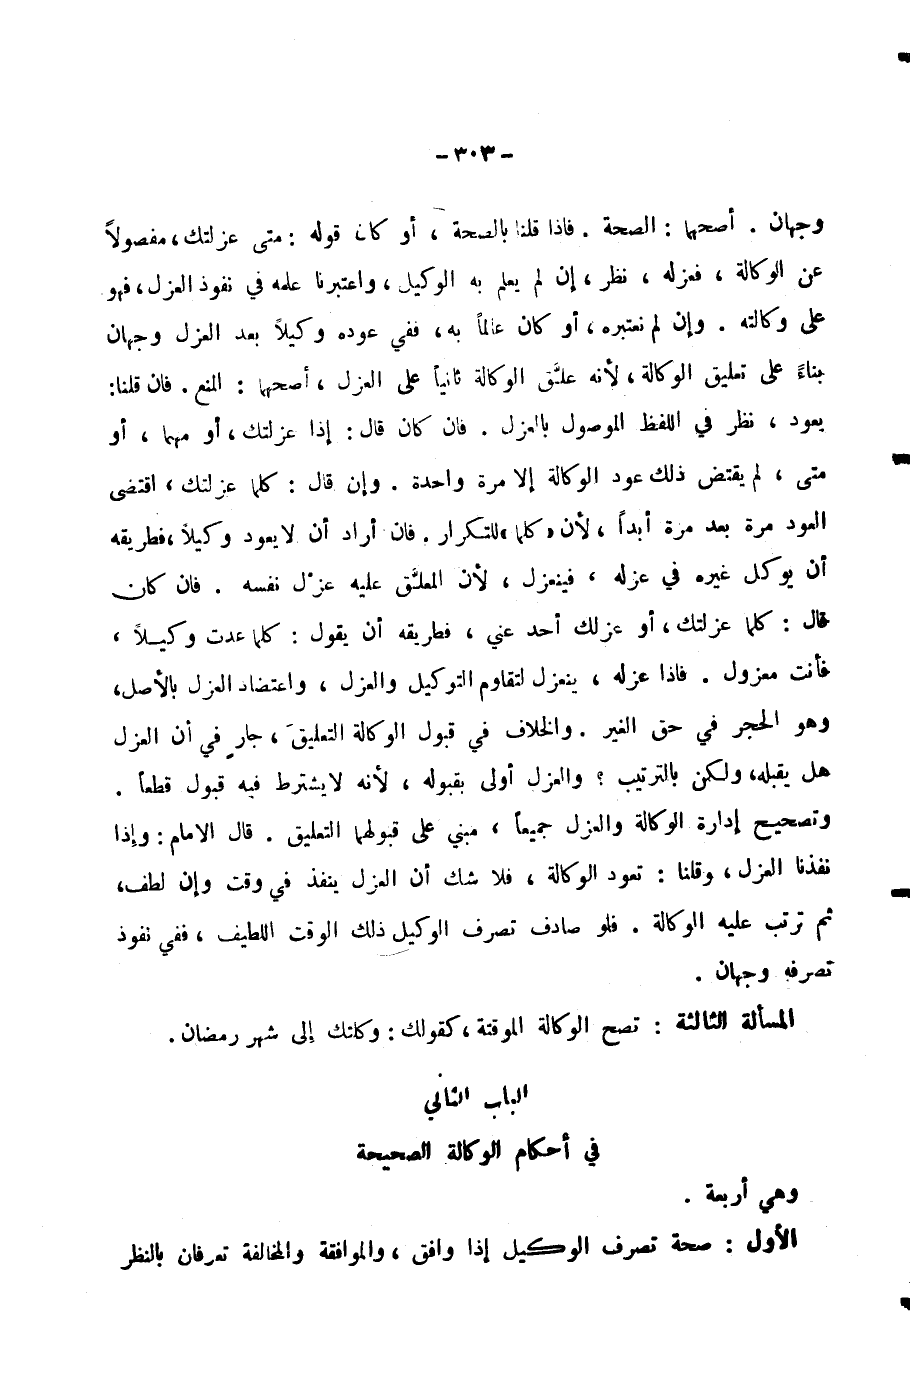 - ٣٠٣ -
وجهان . أصحها : الصحة . فاذا قلنا بالصحة ، أو كان قوله : متى عزلتك ، مفصولاً
عن الوكالة ، فعزله ، نظر ، إن لم يعلم به الوكيل ، واعتبرنا علمه في نفوذ العزل ، فهو
على وكالته . وإن لم نعتبره ، أو كان عالماً به ، ففي عوده وكيلاً بعد العزل وجهان
بناءً على تعليق الوكالة ، لأنه علَّق الوكالة ثانياً على العزل ، أصحها : المنع . فان قلنا :
يعود ، نظر في اللفظ الموصول بالعزل . فان كان قال : إذا عزلتك ، أو مهما ، أو
متى ، لم يقتض ذلك عود الوكالة إلا مرة واحدة . وإن قال : كلما عزلتك ، اقتضى
العود مرة بعد مرة أبداً ، لأن « كلما » للتكرار . فان أراد أن لا يعود وكيلاً ، فطريقه
أن يوكل غيره في عزله ، فينعزل ، لأن المعلَّق عليه عزل نفسه . فان كان
قال : كلما عزلتك ، أو عزلك أحد عني ، فطريقه أن يقول : كلما عدت وكيلاً ،
فأنت معزول . فاذا عزله ، ينعزل لتقاوم التوكيل والعزل ، واعتضاد العزل بالأصل ،
وهو الحجر في حق الغير . والخلاف في قبول الوكالة التعليقَ ، جارٍ في أن العزل
هل يقبله ، ولكن بالترتيب ؟ والعزل أولى بقبوله ، لأنه لا يشترط فيه قبول قطعاً .
وتصحيح إدارة الوكالة والعزل جميعاً ، مبني على قبولهما التعليق . قال الامام : وإذا
نفذنا العزل ، وقلنا : تعود الوكالة ، فلا شك أن العزل ينفذ في وقت وإن لطف ،
ثم ترتب عليه الوكالة . فلو صادف تصرف الوكيل ذلك الوقت اللطيف ، ففي نفوذ
تصرفه وجهان .
المسألة الثالثة : تصح الوكالة الموقتة ، كقولك : وكلتك إلى شهر رمضان .
الباب الثاني
في أحكام الوكالة الصحيحة
وهي أربعة .
الأول : صحة تصرف الوكيل إذا وافق ، والموافقة والمخالفة تعرفان بالنظر